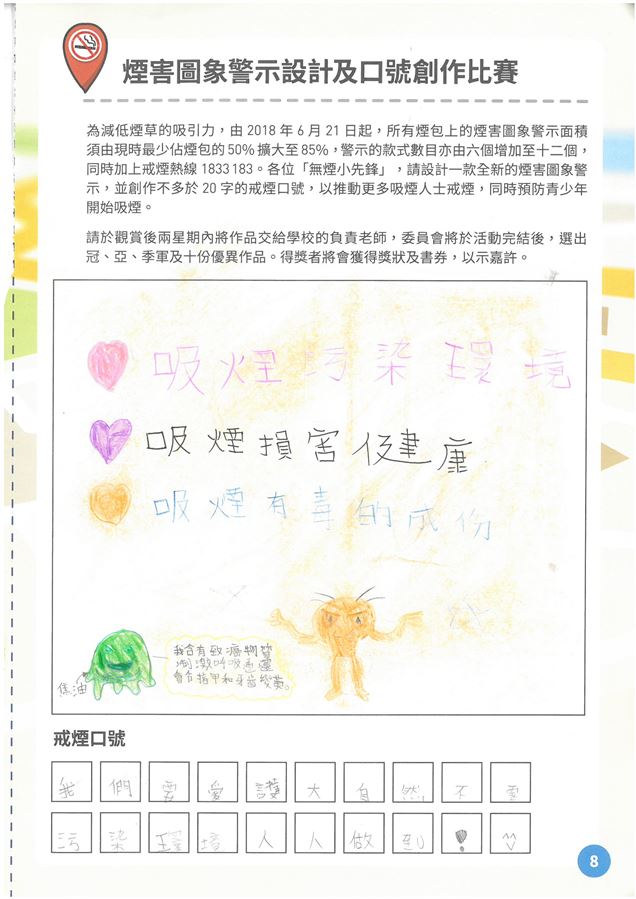 煙害圖象警示設計及口號創作比賽
為減低煙草的吸引力，由 2018 年 6 月 21 日起，所有煙包上的煙害圖象警示面積
須由現時最少佔煙包的 50% 擴大至 85%，警示的款式數目亦由六個增加至十二個，
同時加上戒煙熱線 1833 183。各位「無煙小先鋒」，請設計一款全新的煙害圖象警
示，並創作不多於 20 字的戒煙口號，以推動更多吸煙人士戒煙，同時預防青少年
開始吸煙。
請於觀賞後兩星期內將作品交給學校的負責老師，委員會將於活動完結後，選出
冠、亞、季軍及十份優異作品。得獎者將會獲得獎狀及書券，以示嘉許。
吸煙污染環境
吸煙損害健康
吸煙有毒的成份
我含有致癌物質
刺激呼吸道還
會令指甲和牙齒變黃。
焦油
戒煙口號
我們要愛護大自然不要
污染環境人人做到！
8